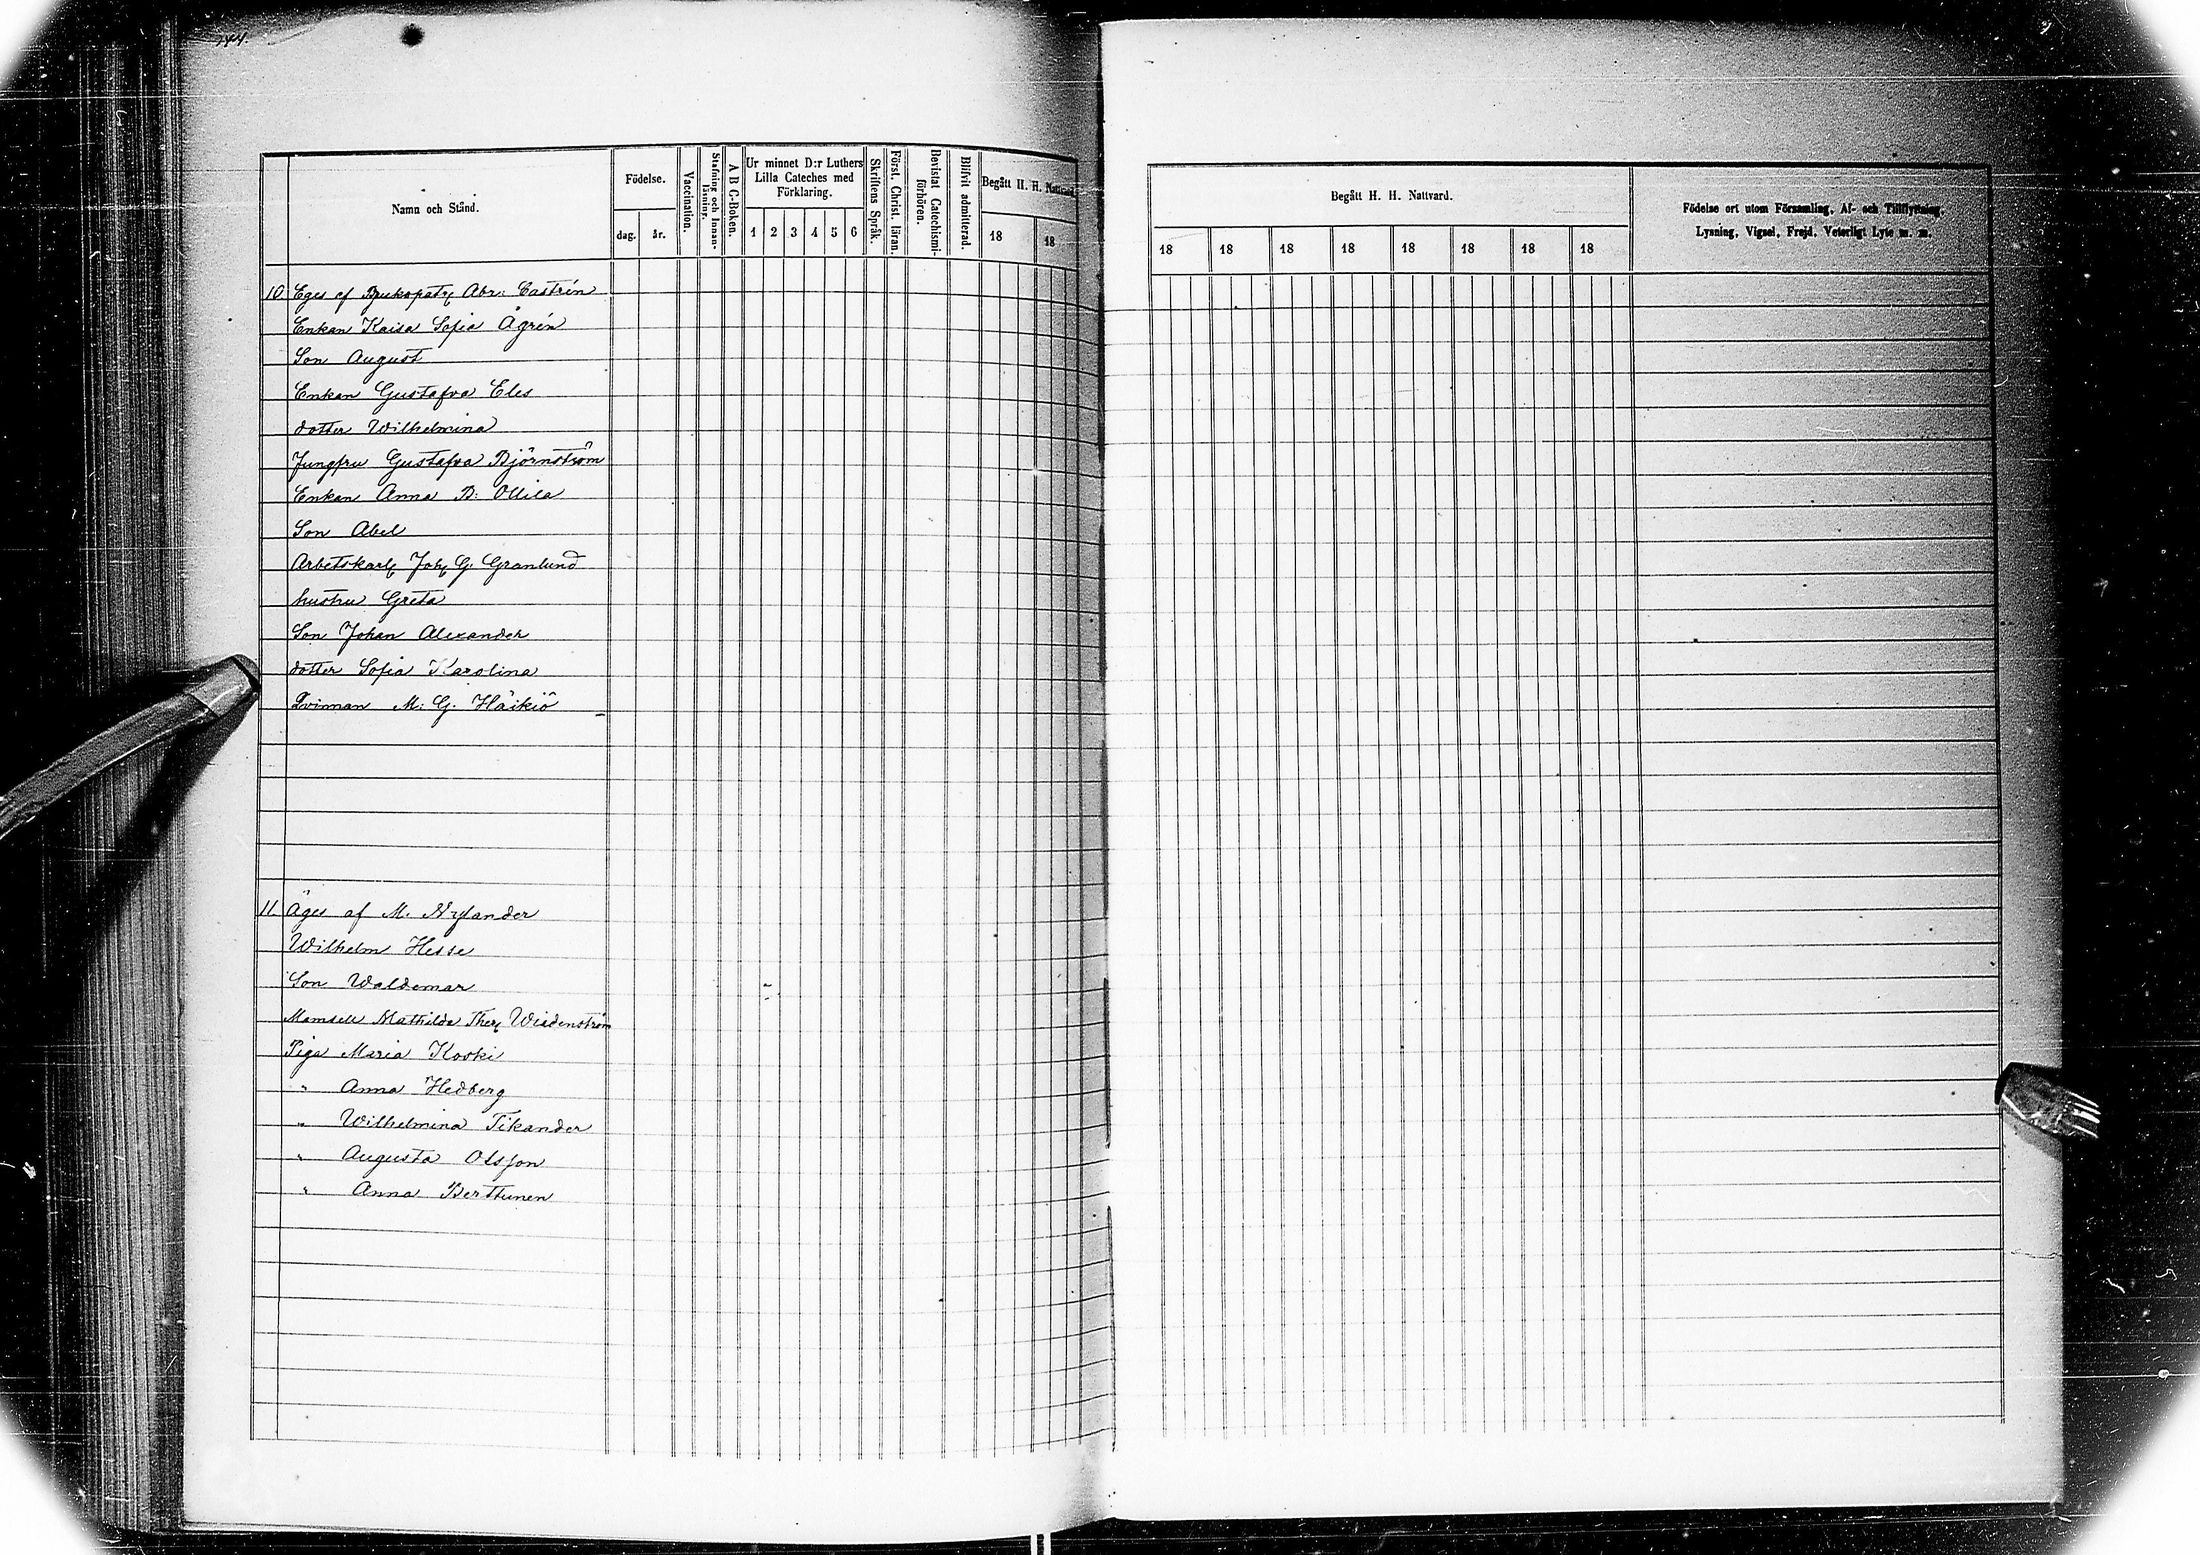 144.
Namn och Stånd.
Födelse.
dag.
år.
Vaccination.
Stafning och Innan-
läsning.
A B C-Boken.
Ur minnet D:r Luthers
Lilla Cateches med
Förklaring.
1 2 3 4 5 6
Skriftens Språk.
Först. Christ. läran.
Bevistat Catechismi-
förhören.
Blifvit admitterad.
Begått H. H. Nattvard.
18 18
10 Eges af Brukspatr Abr: Castrén
Enkan Kaisa Sofia Ågrén
Son August
Enkan Gustafva Eles
dotter Wilhelmina
Jungfru Gustafva Björnström
Enkan Anna B: Ollila
Son Abel
Arbetskarl Joh G. Granlund
hustru Greta
Son Johan Alexander
dotter Sofia Karolina
Qvinnan M: G. Häikiö
11. Äges af M. Nylander
Wilhelm Hesse
Son Waldemar
Mamsell Mathilda Ther Wiedenström
Piga Maria Koski
" Anna Hedberg
" Wilhelmina Tikander
" Augusta Olsson
" Anna Berttunen
Begått H. H. Nattvard.
18 18 18 18 18 18 18 18
Födelse ort utom Församling, Af- och Tillflyttning,
Lysning, Vigsel, Frejd, Veterligt Lyte m. m.